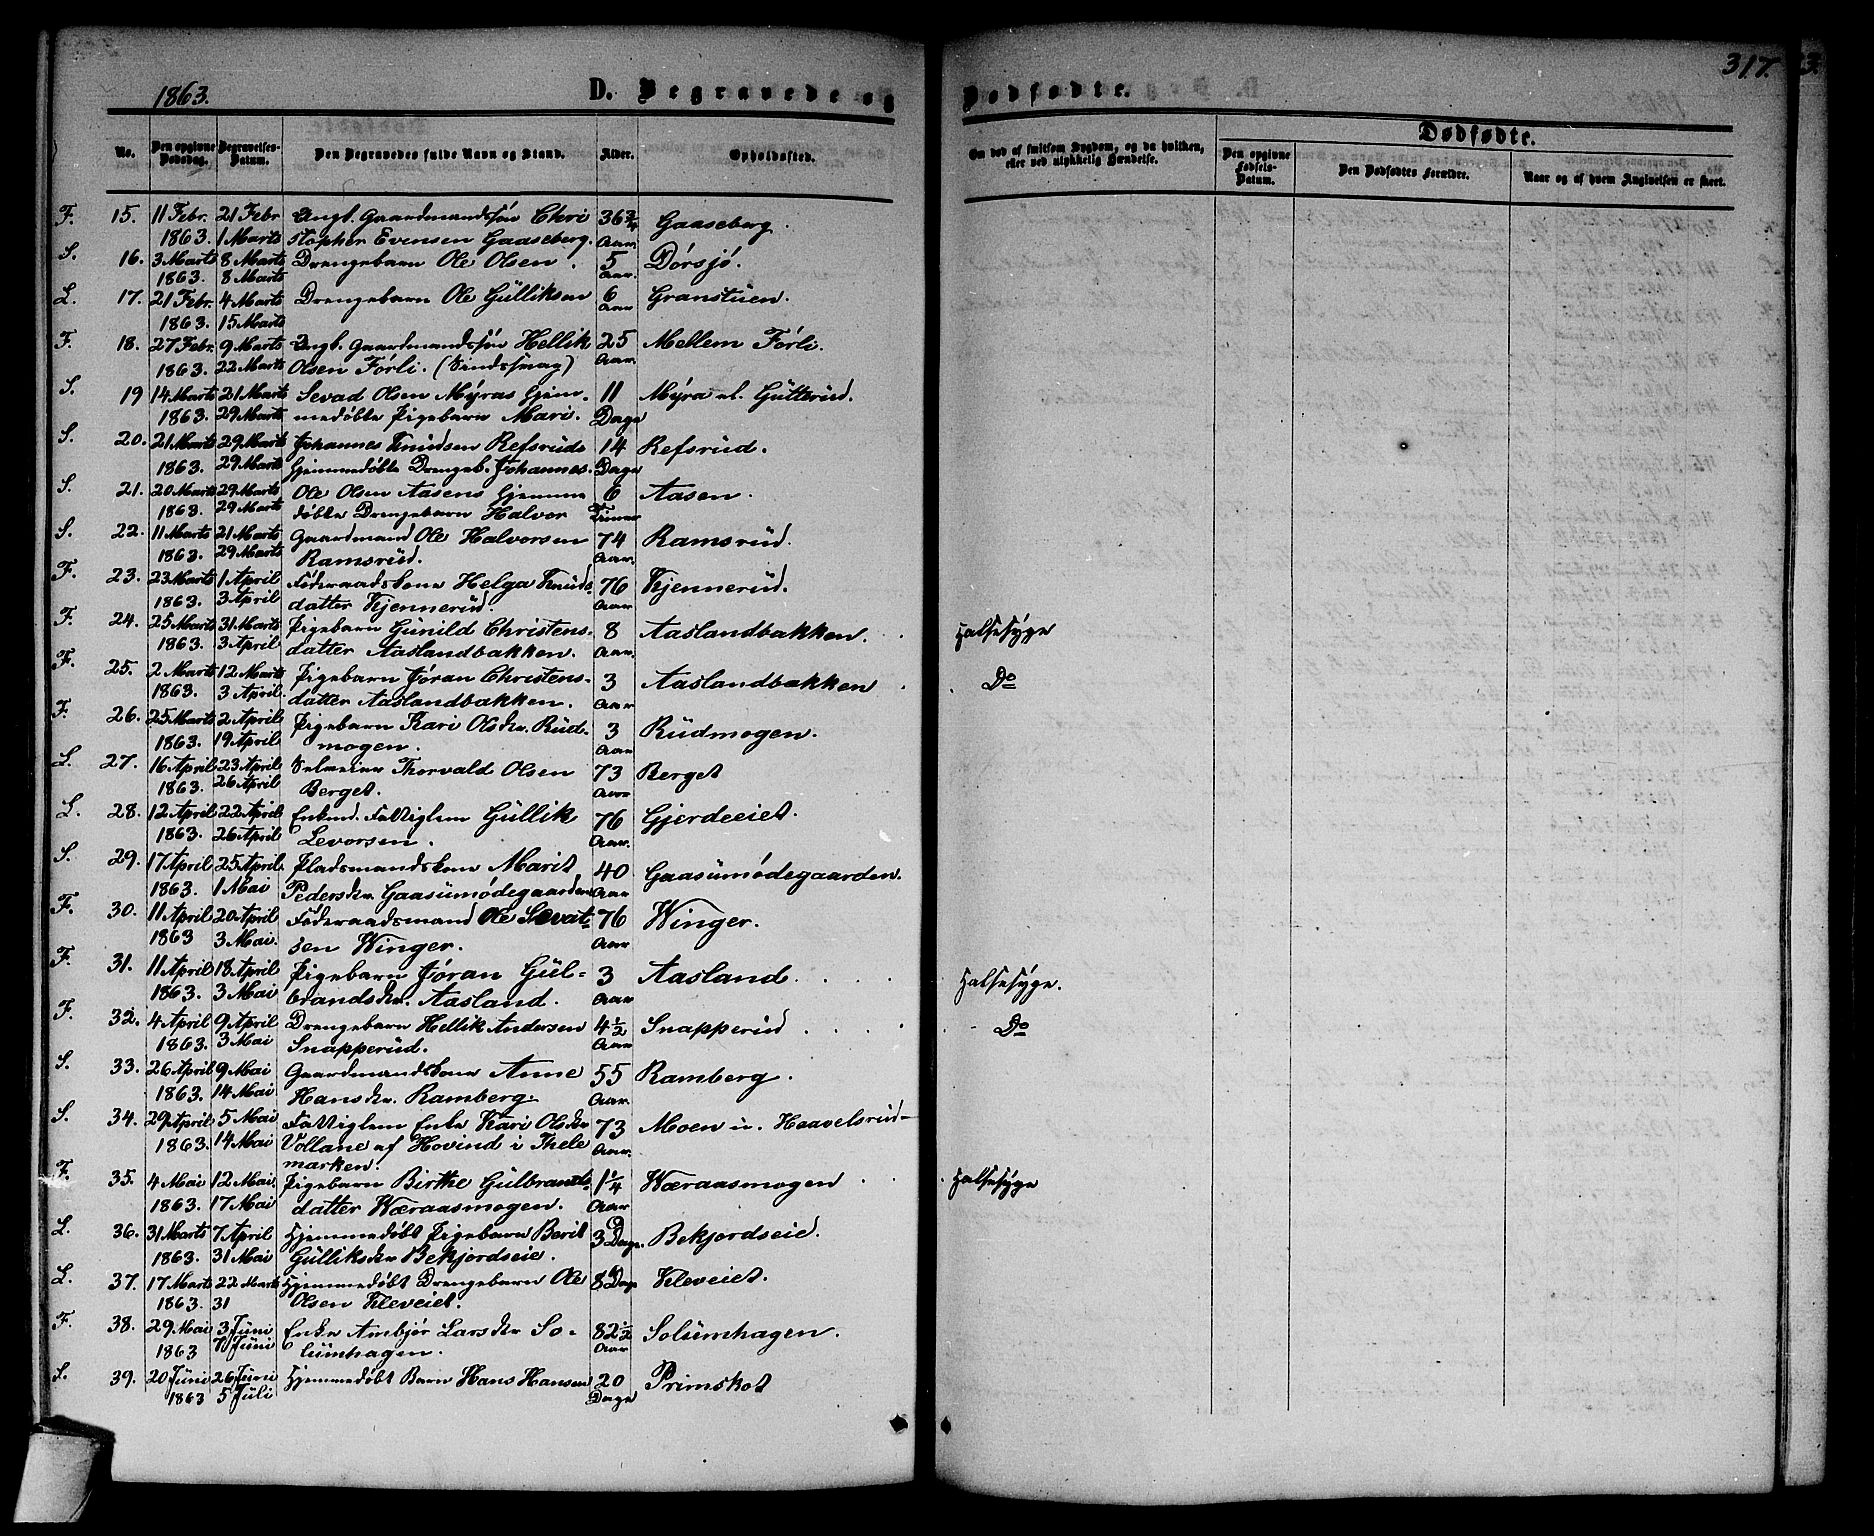 1863.
D. Begravede og Dødfødte.
317.
3.
Dødfødte.
No.
Den opgivne Dødsdag.
Begravelses-Datum.
Den Begravedes fulde Navn og Stand.
Alder.
Opholdssted.
Om død af smitsom Sygdom, og da hvilken, eller ved ulykkelig Hændelse.
Den opgivne Fødsels-Datum.
Den Dødfødtes Forældre.
Naar og af hvem Angivelsen er skeet.
F. 15. 11 Febr. 21 Febr Ungk. Gaardmandssøn Chri 36¾ Gaaseberg.
1863. 1 Marts stopher Evensen Gaaseberg. Aar.
S. 16. 3 Marts 8 Marts Drengebarn Ole Olsen. 5 Dørsjø.
1863. 8 Marts Aar.
L. 17. 21 Febr. 4 Marts Drengebarn Ole Gülliksen 6 Granstüen.
1863. 15 Marts Aar
F. 18. 27 Febr. 9 Marts Ungk. Gaardmandssøn Hellik 25 Mellem Førli.
1863. 22 Marts Olsen Førli. (Sindssvag) Aar.
S. 19 14 Marts 21 Marts Sevad Olsen Myras hjem- 11 Myra el. Gütterüd.
1863. 29 Marts medøbte Pigebarn Mari. Dage
S. 20. 21 Marts 29 Marts Johannes Knüdsen Refsrüds 14 Refsrüd.
1863. 29 Marts hjemmedøbte Drengeb. Johannes. Dage
S. 21. 20 Marts 29 Marts Ole Olsen Aasens hjemme 6 Aasen.
1863. 29 Marts døbte Drengebarn Halvor Timer
S. 22. 11 Marts 21 Marts Gaardmand Ole Halvorsen 74 Ramsrüd.
1863. 29 Marts Ramsrüd. Aar.
F. 23. 23 Marts 1 April Føderaadskone Helga Knüds- 76 Kjennerüd.
1863. 3 April datter Kjennerüd. Aar
F. 24. 25 Marts 31 Marts Pigebarn Günild Christens- 8 Aaslandbakken. Halsesyge
1863. 3 April datter Aaslandbakken. Aar.
F. 25. 2 Marts 12 Marts Pigebarn Jøran Christens- 3 Aaslandbakken Do
1863. 3 April. datter Aaslandbakken. Aar
F. 26. 25 Marts 2 April Pigebarn Kari Olsdr. Rüd- 3 Rüdmogen.
1863. 19 April mogen. Aar
L. 27. 16 April 23 April Selveier Thorvald Olsen 73 Berget
1863. 26 April Berget. Aar
L. 28. 12 April 22 April Enkemd. Fattiglem Güllik 76 Gjerdeeiet.
1863. 26 April Levorsen. Aar.
S. 29. 17 April 25 April. Pladsmandskone Marit 40 Gaasümødegaarden.
1863. 1 Mai Pedersdr. Gaasümødegaarden Aar
F. 30. 11 April 20 April Føderaadsmand Ole Sevat- 76 Winger.
1863 3 Mai. sen Winger. Aar
F. 31. 11 April 18 April Pigebarn Jøran Gül- 3 Aasland. Halsesyge.
1863. 3 Mai brandsdr. Aasland. Aar
F. 32. 4 April 9 April Drengebarn Hellik Andersen 4½ Snapperüd Do
1863. 3 Mai Snapperüd. Aar
S. 33. 26 April 9 Mai Gaardmandskone Anne 55 Ramberg.
1863. 14 Mai Hansdr. Ramberg. Aar.
S. 34. 29 April 5 Mai Fattiglem Enke Kari Olsdr 73 Moen u. Haavelsrüd-
1863. 14 Mai Vollane af Hovind i Thele Aar.
marken.
F. 35. 4 Mai 12 Mai. Pigebarn Birthe Gülbrands- 1¼ Wæraasmogen Halsesyge
1863. 17 Mai datter Wæraasmogen. Aar
L. 36. 31 Marts 7 April Hjemmedøbt Pigebarn Berit 3 Dage. Bekjordseie.
1863. 31 Mai Gülliksdr Bekjordseie.
L. 37. 17 Marts 22 Marts Hjemmedøbt Drengebarn Ole 8 Dage Kleveiet.
1863. 31 Olsen Kleveiet.
F. 38. 29 Mai 3 Jüni Enke Ambjør Larsdr So- 82½ Solümhagen.
1863 7 Jüni lümhagen. Aar
S. 39. 20 Jüni 26 Jüni Hjemmedøbt Barn Hans Hansen 20 Primskot
1863 5 Jüli Dage